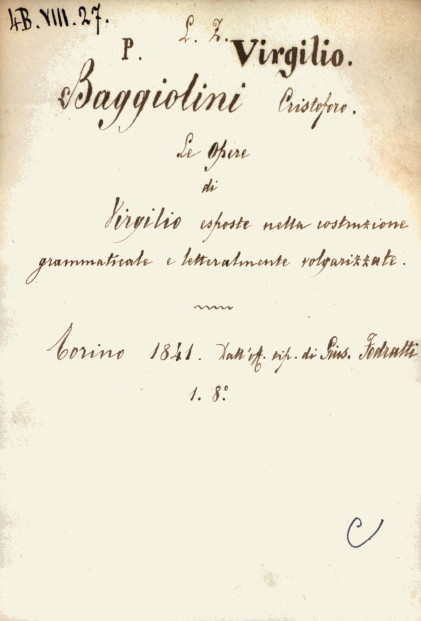 4B.VIII.27.
L. Z.
P. Virgilio.
Baggiolini Cristoforo.
Le Opere
di
Virgilio esposte nella costruzione
grammaticale e letteralmente volgarizzate.
Torino 1841. Dall'off. tip. di Gius. Fodratti
1. 8°
C